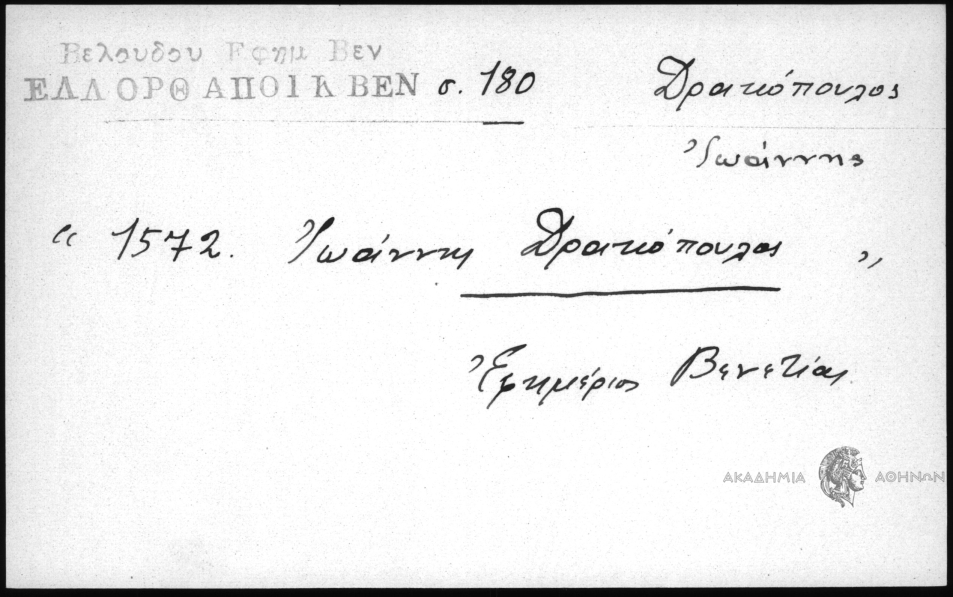 Βελουδου Εφημ Βεν
ΕΛΛ ΟΡΘ ΑΠΟΙΚ ΒΕΝ σ. 180
Δρακόπουλος
Ἰωάννης
“ 1572. Ἰωάννης Δρακόπουλος ”
Ἐφημέριος Βενετίας
ΑΚΑΔΗΜΙΑ ΑΘΗΝΩΝ